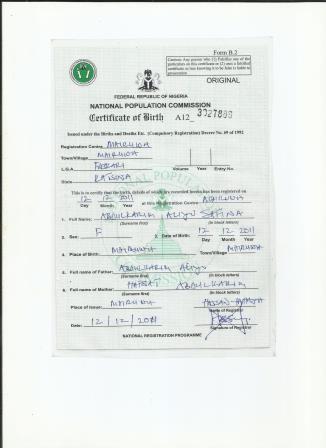 Form B.2
Caution: Any person who (1) Falsifies any of the particulars on this certificate or (2) uses a falsified certificate as true knowing it to be false is liable to prosecution
ORIGINAL
FEDERAL REPUBLIC OF NIGERIA
NATIONAL POPULATION COMMISSION
Certificate of Birth A12
Issued under the Births and Deaths Etc. (Compulsory Registration) Decree No. 69 of 1992
Registration Centre MAIRUWA
Town/Village MAIRUWA
L.G.A Volume Year Entry No.
State KATSINA
This is to certify that the birth, details of which are recorded herein has been registered on
12 12 2011 at this Registration Centre MAIRUWA
Day Month Year
1. Full Name: ABDULKARIM ALIYU
(Surname first) (in block letters)
2. Sex: F 3. Date of Birth: 12 12 2011
Day Month Year
4. Place of Birth: MAIRUWA Town/Village MAIRUWA
5. Full name of Father: ABDULKARIM ALIYU
(Surname first) (in block letters)
6. Full name of Mother: ABDULKARIM
(Surname first) (in block letters)
Place of Issue: MAIRUWA HASSAN
Name of Registrar
Date: 12/12/2011
Signature of Registrar
NATIONAL REGISTRATION PROGRAMME